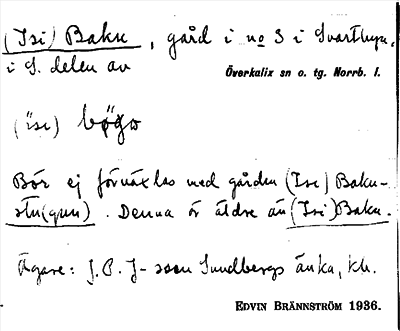 (Isi) Baku, gård i no 3 i Svartbyn,
i S. delen av
Överkalix sn o. tg. Norrb. l.
Bör ej förväxlas med gården (Isi) Baku-
stu(gun). Denna är äldre än (Isi) Baku.
Ägare: J. P. J-sson Sundbergs änka, kh.
EDVIN BRÄNNSTRÖM 1936.